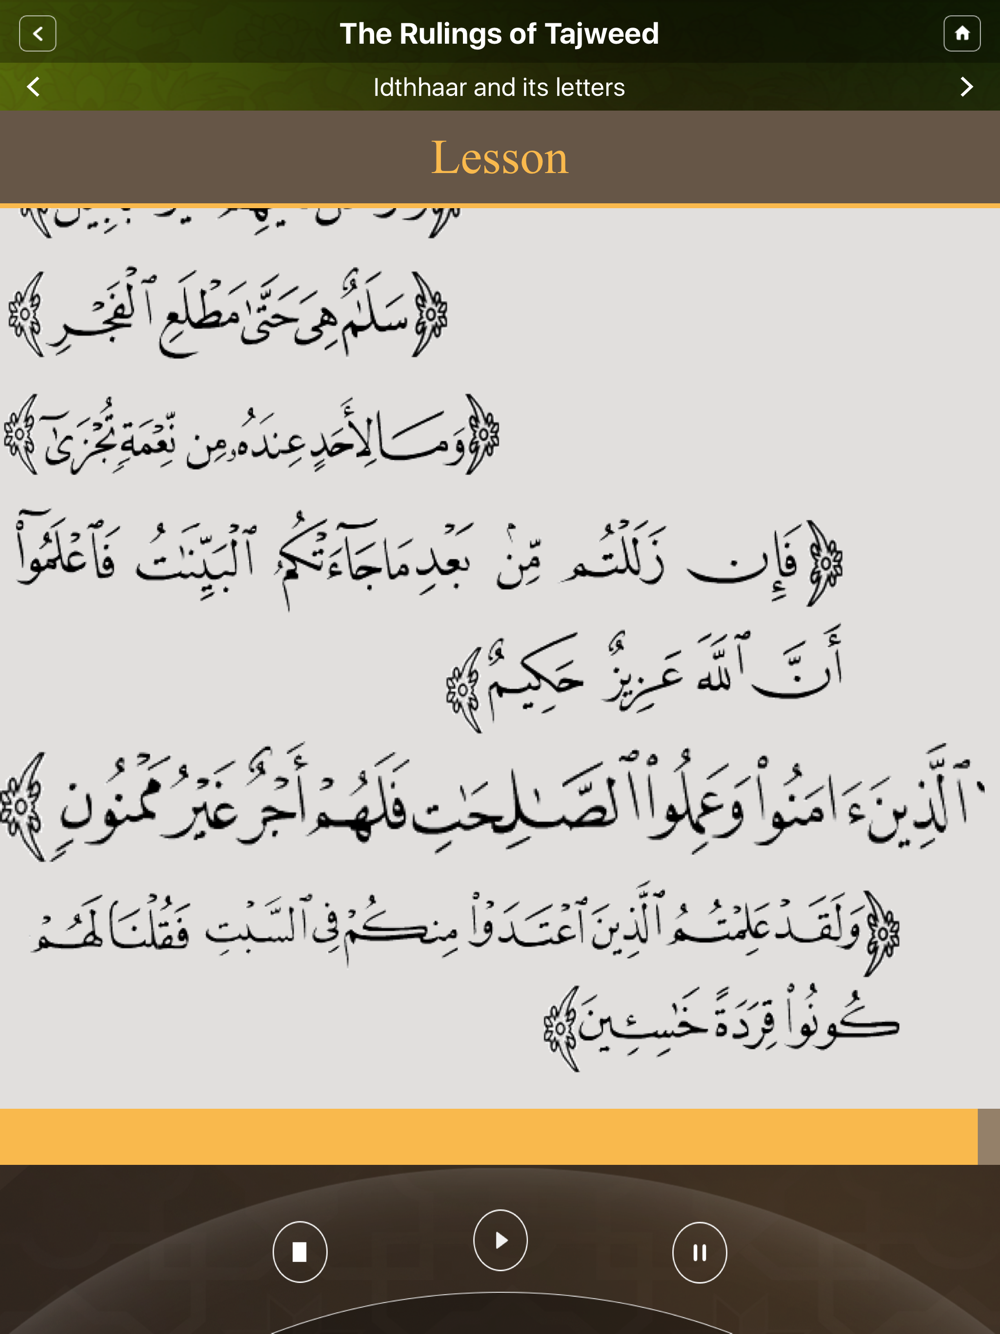 The Rulings of Tajweed
Idthhaar and its letters
Lesson
﴿سَلَٰمٌ هِىَ حَتَّىٰ مَطْلَعِ ٱلْفَجْرِ﴾
﴿وَمَا لِأَحَدٍ عِندَهُۥ مِن نِّعْمَةٍ تُجْزَىٰٓ﴾
﴿فَإِن زَلَلْتُم مِّنۢ بَعْدِ مَا جَآءَتْكُمُ ٱلْبَيِّنَٰتُ فَٱعْلَمُوٓا۟
أَنَّ ٱللَّهَ عَزِيزٌ حَكِيمٌ﴾
ٱلَّذِينَ ءَامَنُوا۟ وَعَمِلُوا۟ ٱلصَّٰلِحَٰتِ فَلَهُمْ أَجْرٌ غَيْرُ مَمْنُونٍ﴾
﴿وَلَقَدْ عَلِمْتُمُ ٱلَّذِينَ ٱعْتَدَوْا۟ مِنكُمْ فِى ٱلسَّبْتِ فَقُلْنَا لَهُمْ
كُونُوا۟ قِرَدَةً خَٰسِـِٔينَ﴾